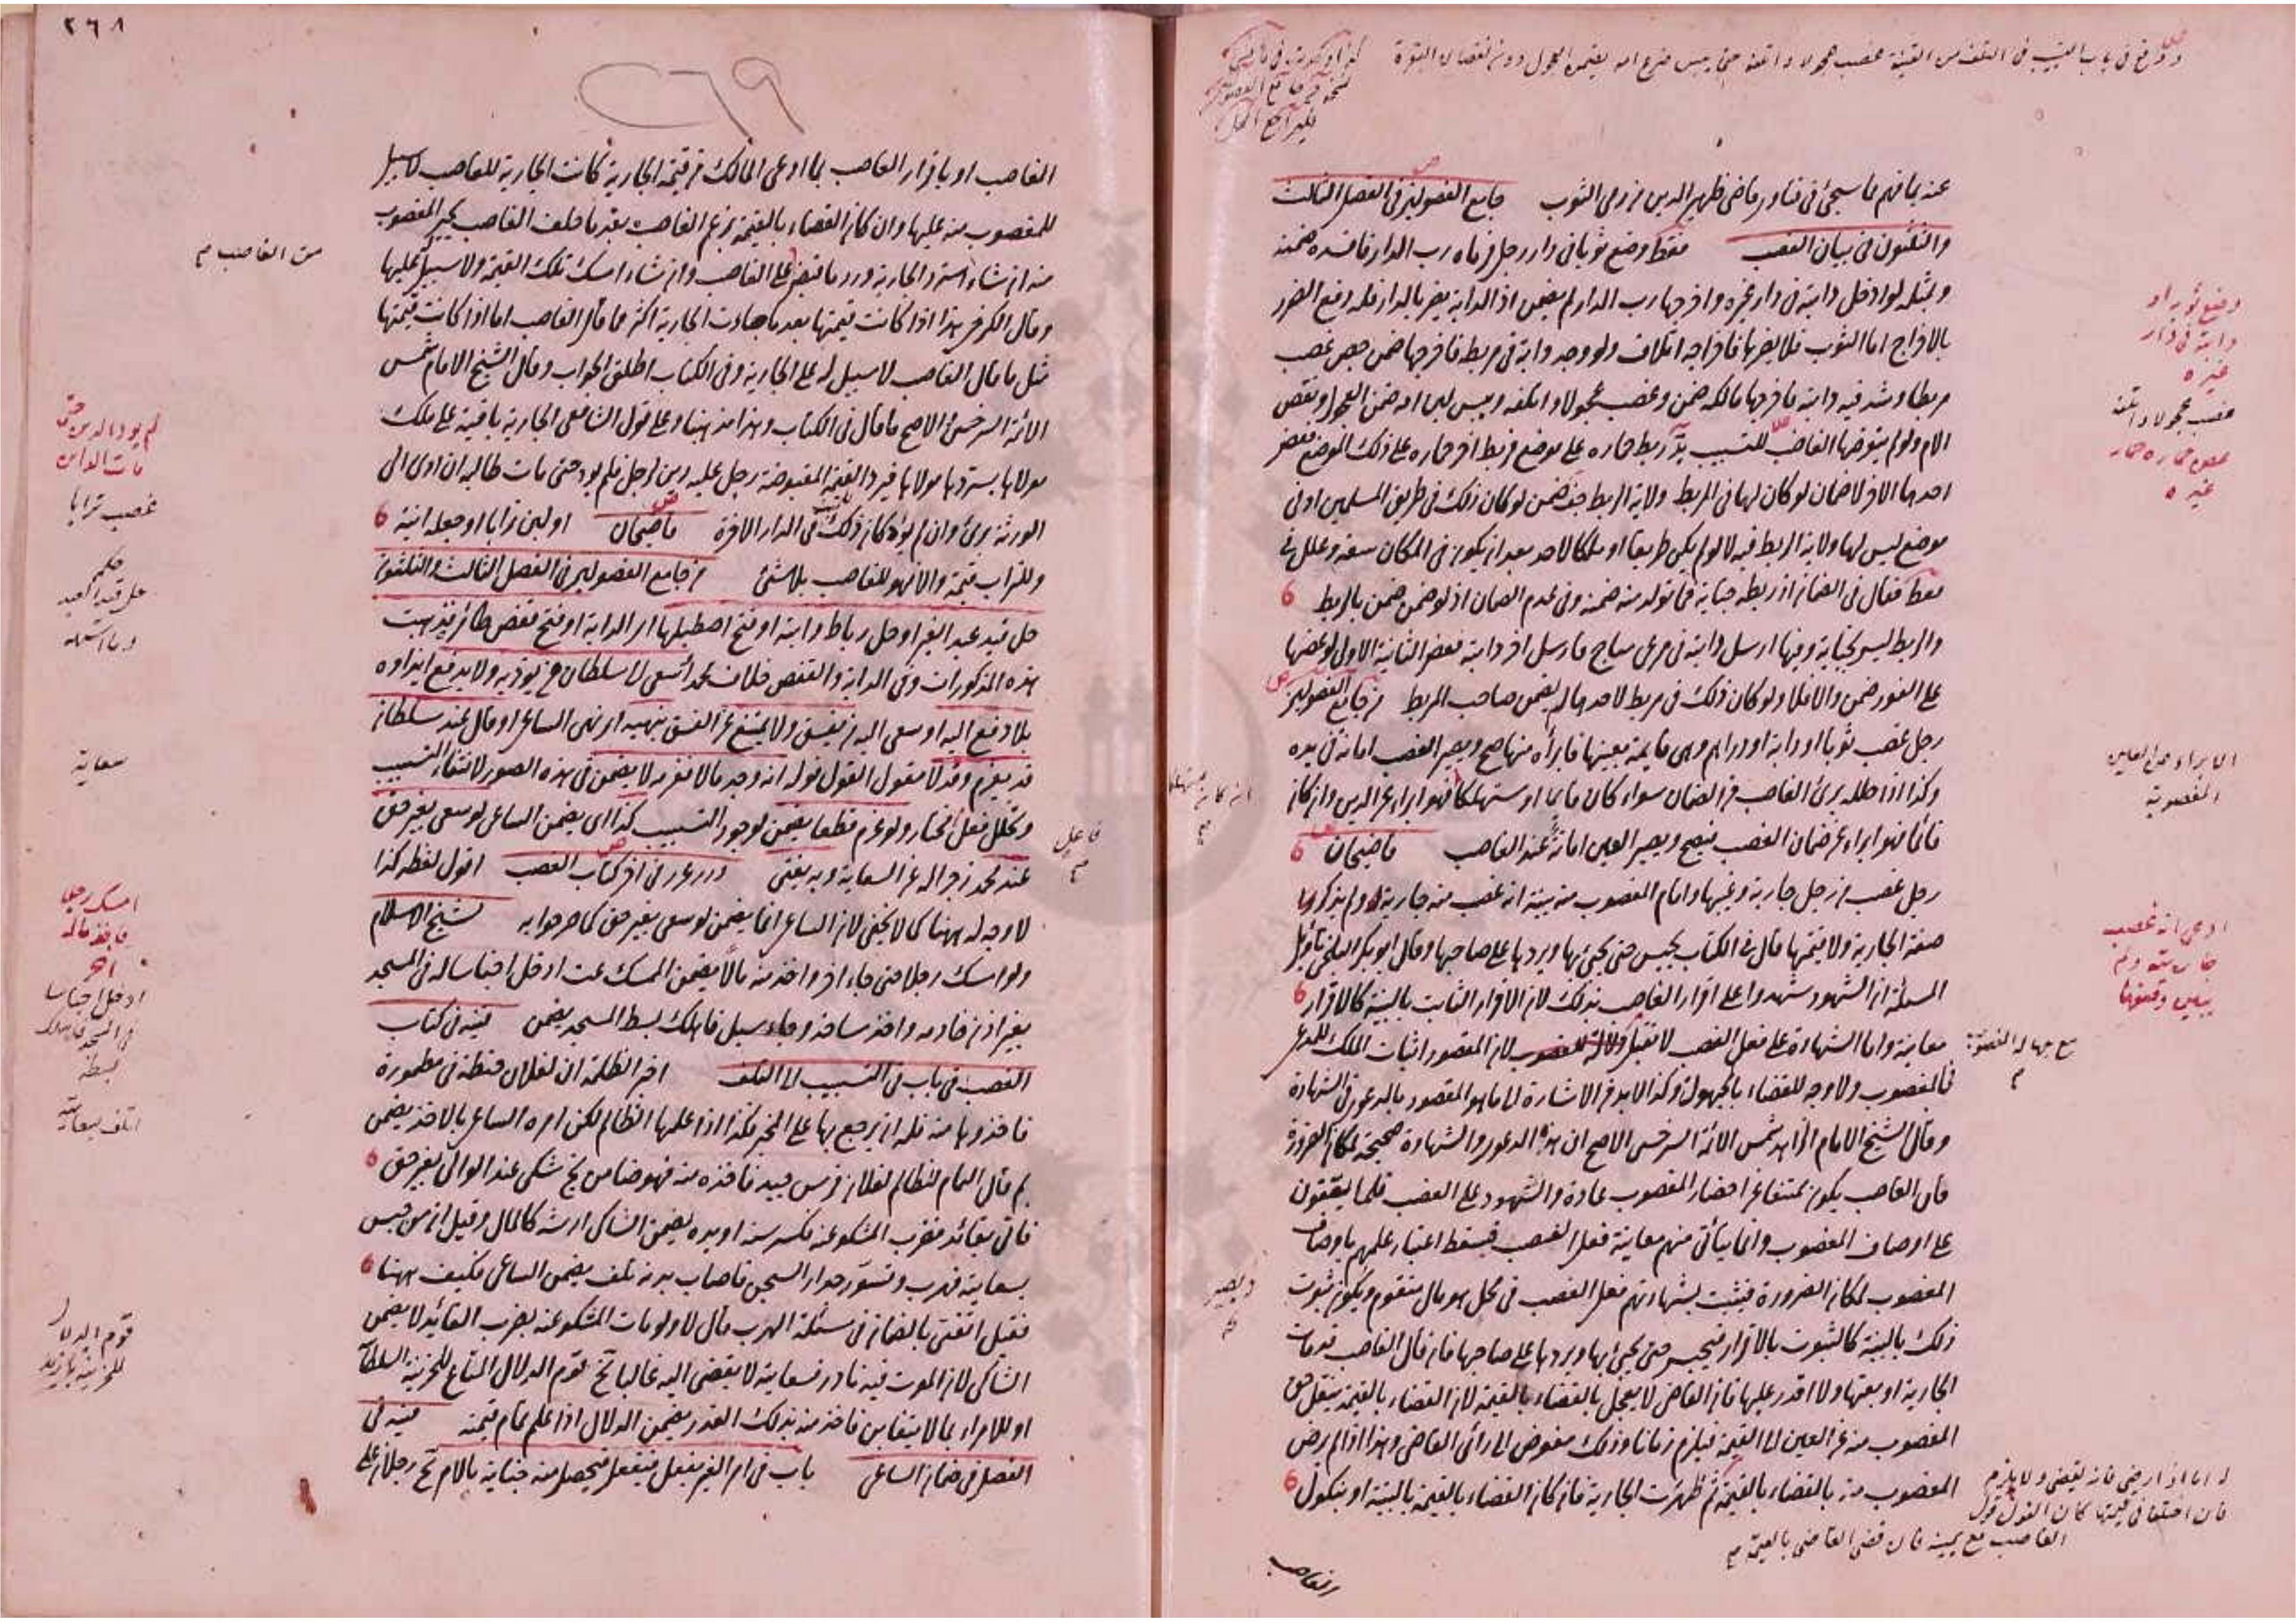 عنه يافهم مما سيجئ في فتاوى قاضي ظهير الدين من رمى الثوب جامع الفصولين في الفصل الثالث
والثلثون في بيان الغصب فقط وضع ثوبا في دار رجل فرماه رب الدار فافسده ضمنه
وبمثله لو ادخل دابة في دار غيره واخرجها رب الدار لم يضمن اذ الدابة يضر بالدار فله دفع الضرر
بالاخراج اما الثوب فلا يضرها فاخراجه اتلاف ولو وجد دابة في مربط فاخرجها ضمن غصب
مربطا وشد فيه دابة فاخرجها مالكه ضمن وغصب عجولا واتلفه ويبس لبن امه ضمن العجول ونقص
الام ولو لم يتعرضها الغاصب للتسبب ربط حماره على موضع فربط اخر حماره على ذلك الموضع فعض
احدهما الاخر لا ضمان لو كان لهما في المربط ولاية الربط ضمن لو كان ذلك في طريق المسلمين او في
موضع ليس لهما ولاية الربط فيه لا لو لم يكن طريقا او ملكا لاحد بعد ان يكون في المكان سعة وعلل في
فقط فقال في الضمان اذ ربطه جناية فما تولد منه ضمنه وفي عدم الضمان اذ لو ضمن ضمن بالربط
والربط ليس بجناية وفيها ارسل دابة في مرعى مباح فارسل اخر دابة فعض الثانية الاولى لو عضها
على الفور ضمن والا فلا ولو كان ذلك في مربط لاحدهما لم يضمن صاحب المربط من جامع الفصولين
رجل غصب ثوبا او دابة او دراهم وهي قايمة بعينها فابرأه منها صح ويصير الغصب امانة في يده
وكذا اذا حلله برئ الغاصب من الضمان سواء كان قايما او مستهلكا فهو ابراء عن الدين وان كان
قائما فهو ابراء عن ضمان الغصب فيصح ويصير العين امانة عند الغاصب قاضيخان
رجل غصب من رجل جارية وغيبها واقام المغصوب منه بينة انه غصب منه جارية ولم يذكروا
صفة الجارية ولا قيمتها قال في الكتاب يحبس حتى يجئ بها ويردها على صاحبها وقال ابو بكر البلخي تأويل
المسئلة ان الشهود شهدوا على اقرار الغاصب بذلك لان الاقرار الثابت بالبينة كالاقرار
معاينة واما الشهادة على فعل الغصب لا تقبل لان المقصود اثبات الملك للمدعي
في المغصوب ولا وجه للقضاء بالمجهول وكذا لابد من الاشارة الى ما هو المقصود بالدعوى في الشهادة
وقال الشيخ الامام الزاهد شمس الائمة السرخسي الاصح ان هذه الدعوى والشهادة صحيحة لمكان الضرورة
فان الغاصب يكون ممتنعا عن احضار المغصوب عادة والشهود على الغصب قلما يقفون
على اوصاف المغصوب وانما يتأتى منهم معاينة فعل الغصب فيسقط اعتبار علمهم باوصاف
المغصوب لمكان الضرورة فيثبت بشهادتهم فعل الغصب في محل هو مال متقوم ويكون ثبوت
ذلك بالبينة كالثبوت بالاقرار فيحبس حتى يجئ بها ويردها على صاحبها فان قال الغاصب قد ماتت
الجارية او بعتها ولا اقدر عليها فان القاضي لا يعجل بالقضاء بالقيمة لان القضاء بالقيمة ينقل حق
المغصوب منه عن العين الى القيمة فيلزم زمانا وذلك مفوض الى رأى القاضي وهذا اذا لم يرض
المغصوب منه بالقضاء بالقيمة ثم ظهرت الجارية فان كان القضاء بالقيمة بالبينة او بنكول
وضع ثوبه او
دابة في دار
غيره
غصب عجولا واتلفه
الابراء عن العين
المغصوبة
ادعى انه غصب
مع جهالة المغصوب
م
ويصير
له اما اذا رضي فانه يقضي ولا يلزم
فان اختلفا في قيمتها كان القول قول
الغاصب مع يمينه فان قضى القاضي بالقيمة م
الغاصب
٢٦٨
٢٦٩
الغاصب او باقرار الغاصب بما ادعى المالك من قيمة الجارية كانت الجارية للغاصب لا سبيل
للمغصوب منه عليها وان كان القضاء بالقيمة بزعم الغاصب بعد ما حلف الغاصب يخير المغصوب
منه ان شاء استرد الجارية ورد ما قبض على الغاصب وان شاء امسك تلك القيمة ولا سبيل عليها
وقال الكرخي هذا اذا كانت قيمتها بعد ما جاءت الجارية اكثر مما قال الغاصب اما اذا كانت قيمتها
مثل ما قال الغاصب لا سبيل له على الجارية وفي الكتاب اطلق الجواب وقال الشيخ الامام شمس
الائمة السرخسي الاصح ما قال في الكتاب وهذا مذهبنا وعلى قول الشافعي الجارية باقية على ملك
مولاها يستردها مولاها فيرد القيمة المقبوضة رجل عليه دين لرجل فلم يؤد حتى مات طالبه ان ادى الى
الورثة برئ وان لم يؤد كان ذلك في الدار الاخرة قاضيخان او لبن ترابا او جعله انية
وللتراب قيمة والا فهو للغاصب بلا شئ من جامع الفصولين في الفصل الثالث والثلثون
حل قيد عبد الغير او حل رباط دابة او فتح اصطبلها اى الدابة او فتح قفص طائر فذهبت
هذه المذكورات وفي الدابة والقفص خلاف محمد او سعى الى سلطان من يؤذيه ولا يدفع ايذاؤه
بلا دفع اليه او سعى اليه من يفسق ولا يمتنع عن الفسق بنهيه اى نهي الساعي او قال عند سلطان
قد يغرم وقد لا مقول القول قوله انه وجد مالا فغرمه لا يضمن في هذه الصور لانتفاء التسبيب
وتخلل فعل المختار ولو غرم قطعا يضمن لوجود التسبيب كذا اى يضمن الساعي لو سعى بغير حق
عند محمد زجرا له عن السعاية وبه يفتى درر غرر في اخر كتاب الغصب اقول لفظه كذا
لا وجه له ههنا كما لا يخفى لان الساعي انما يضمن لو سعى بغير حق كما صرحوا به شيخ الاسلام
ولو امسك رجلا حتى جاء اخر واخذ منه مالا يضمن الممسك عت ادخل اجناسا له في المسجد
بغير اذن خادمه واخذ سافذ وجاء سيل فاهلك بسط المسجد يضمن قنية في كتاب
الغصب في باب في التسبيب الى التلف اخبر الظلمة ان لفلان حنطة في مطمورة
فاخذوها منه فله ان يرجع بها على المخبر وكذا اذا علمها الظالم لكن امره الساعي بالاخذ يضمن
بم قال النمام للظالم لفلان فرس جيد فاخذه منه فهو ضامن نج شكى عند الوالي بغير حق
فاتى بقائد فضرب المشكو عنه فكسر سنه او يده يضمن الشاكي ارشه كالمال وقيل ان من حبس
بسعاية فهرب وتسور جدار السجن فاصاب بدنه تلف يضمن الساعي فكيف ههنا
فقيل اتفتي بالضمان في مسئلة الهرب قال لا ولو مات المشكو عنه بضرب القائد لا يضمن
الشاكي لان الموت فيه نادر فسعايته لا يفضي اليه غالبا نج قوم الدلال المتاع لخزينة السلطان
او للامراء بما لا يتغابن فاخذ منه بذلك القدر يضمن الدلال اذا علم تمام قيمته قنية في
الفصل في ضمان الساعي باب في امر الغير بفعل فيفعل فيحصل منه جناية بالامر نج رجلان على
من الغاصب م
لم يؤد الدين حتى
مات الدائن
غصب ترابا
حكم
حل قيد العبد
وما اشبهه
سعاية
فاعل
م
امسك رجلا
فاخذ ماله
اخر
ادخل اجناسا
في المسجد فاهلك
بسطه
اتلف بسعاية
قوم الدلال